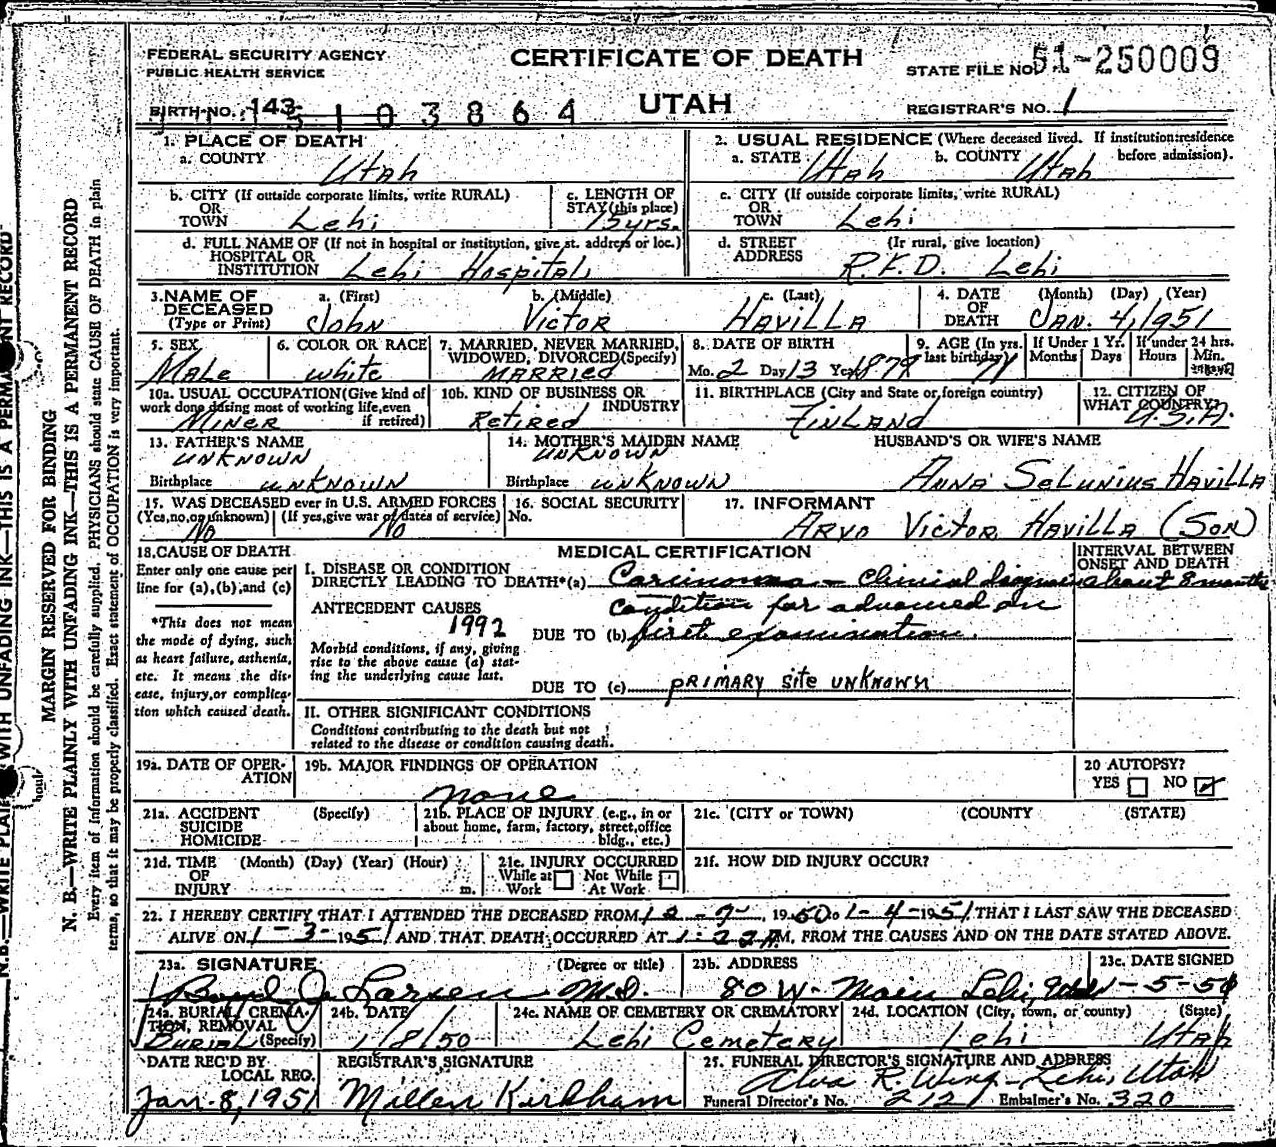 FEDERAL SECURITY AGENCY
PUBLIC HEALTH SERVICE
CERTIFICATE OF DEATH
UTAH
STATE FILE NO. 51-250009
BIRTH NO. 143
103864
REGISTRAR'S NO. 1
MARGIN RESERVED FOR BINDING
N. B.—WRITE PLAINLY WITH UNFADING INK—THIS IS A PERMANENT RECORD
Every item of information should be carefully supplied. PHYSICIANS should state CAUSE OF DEATH in plain
terms, so that it may be properly classified. Exact statement of OCCUPATION is very important.
1. PLACE OF DEATH
a. COUNTY Utah
2. USUAL RESIDENCE (Where deceased lived. If institution: residence
before admission).
a. STATE Utah b. COUNTY Utah
b. CITY (If outside corporate limits, write RURAL)
OR
TOWN Lehi
c. LENGTH OF
STAY (this place)
15 yrs.
c. CITY (If outside corporate limits, write RURAL)
OR
TOWN Lehi
d. FULL NAME OF (If not in hospital or institution, give st. address or loc.)
HOSPITAL OR
INSTITUTION Lehi Hospital
d. STREET (If rural, give location)
ADDRESS R.F.D. Lehi
3. NAME OF DECEASED
(Type or Print)
a. (First) b. (Middle) c. (Last)
John Victor Havilla
4. DATE OF DEATH (Month) (Day) (Year)
Jan. 4, 1951
5. SEX
Male
6. COLOR OR RACE
white
7. MARRIED, NEVER MARRIED,
WIDOWED, DIVORCED (Specify)
MARRIED
8. DATE OF BIRTH
Mo. 2 Day 13 Year 1879
9. AGE (In yrs.
last birthday) 71
If Under 1 Yr.
Months Days
If under 24 hrs.
Hours Min.
10a. USUAL OCCUPATION (Give kind of
work done during most of working life, even
if retired)
Miner
10b. KIND OF BUSINESS OR
INDUSTRY
Retired
11. BIRTHPLACE (City and State or foreign country)
Finland
12. CITIZEN OF
WHAT COUNTRY?
U.S.A.
13. FATHER'S NAME
UNKNOWN
Birthplace UNKNOWN
14. MOTHER'S MAIDEN NAME
UNKNOWN
Birthplace UNKNOWN
HUSBAND'S OR WIFE'S NAME
Anna Selunius Havilla
15. WAS DECEASED ever in U.S. ARMED FORCES
(Yes, no, or unknown) (If yes, give war or dates of service)
No No
16. SOCIAL SECURITY
No.
17. INFORMANT
Arvo Victor Havilla (Son)
18. CAUSE OF DEATH
Enter only one cause per
line for (a), (b), and (c)
*This does not mean
the mode of dying, such
as heart failure, asthenia,
etc. It means the dis-
ease, injury, or complica-
tion which caused death.
MEDICAL CERTIFICATION
INTERVAL BETWEEN
ONSET AND DEATH
I. DISEASE OR CONDITION
DIRECTLY LEADING TO DEATH*(a) Carcinoma - clinical diagnosis about 8 months
condition far advanced on
ANTECEDENT CAUSES
1992
DUE TO (b) first examination.
Morbid conditions, if any, giving
rise to the above cause (a) stat-
ing the underlying cause last.
DUE TO (c) PRIMARY site UNKNOWN
II. OTHER SIGNIFICANT CONDITIONS
Conditions contributing to the death but not
related to the disease or condition causing death.
19a. DATE OF OPER-
ATION
19b. MAJOR FINDINGS OF OPERATION
none
20 AUTOPSY?
YES NO
21a. ACCIDENT (Specify)
SUICIDE
HOMICIDE
21b. PLACE OF INJURY (e.g., in or
about home, farm, factory, street, office
bldg., etc.)
21c. (CITY or TOWN) (COUNTY) (STATE)
21d. TIME (Month) (Day) (Year) (Hour)
OF
INJURY m.
21e. INJURY OCCURRED
While at Work Not While At Work
21f. HOW DID INJURY OCCUR?
22. I HEREBY CERTIFY THAT I ATTENDED THE DECEASED FROM 12-7-, 1950 to 1-4-1951 THAT I LAST SAW THE DECEASED
ALIVE ON 1-3-1951 AND THAT DEATH OCCURRED AT 1:22 A M, FROM THE CAUSES AND ON THE DATE STATED ABOVE.
23a. SIGNATURE (Degree or title)
Boyd J. Larsen M.D.
23b. ADDRESS
80 W. Main Lehi, Utah
23c. DATE SIGNED
1-5-51
24a. BURIAL, CREMA-
TION, REMOVAL
(Specify)
Burial
24b. DATE
1/8/50
24c. NAME OF CEMETERY OR CREMATORY
Lehi Cemetery
24d. LOCATION (City, town, or county) (State)
Lehi Utah
DATE REC'D BY
LOCAL REG.
Jan. 8, 1951
REGISTRAR'S SIGNATURE
Millen Kirkham
25. FUNERAL DIRECTOR'S SIGNATURE AND ADDRESS
Alva R. Wing - Lehi, Utah
Funeral Director's No. 212 Embalmer's No. 320